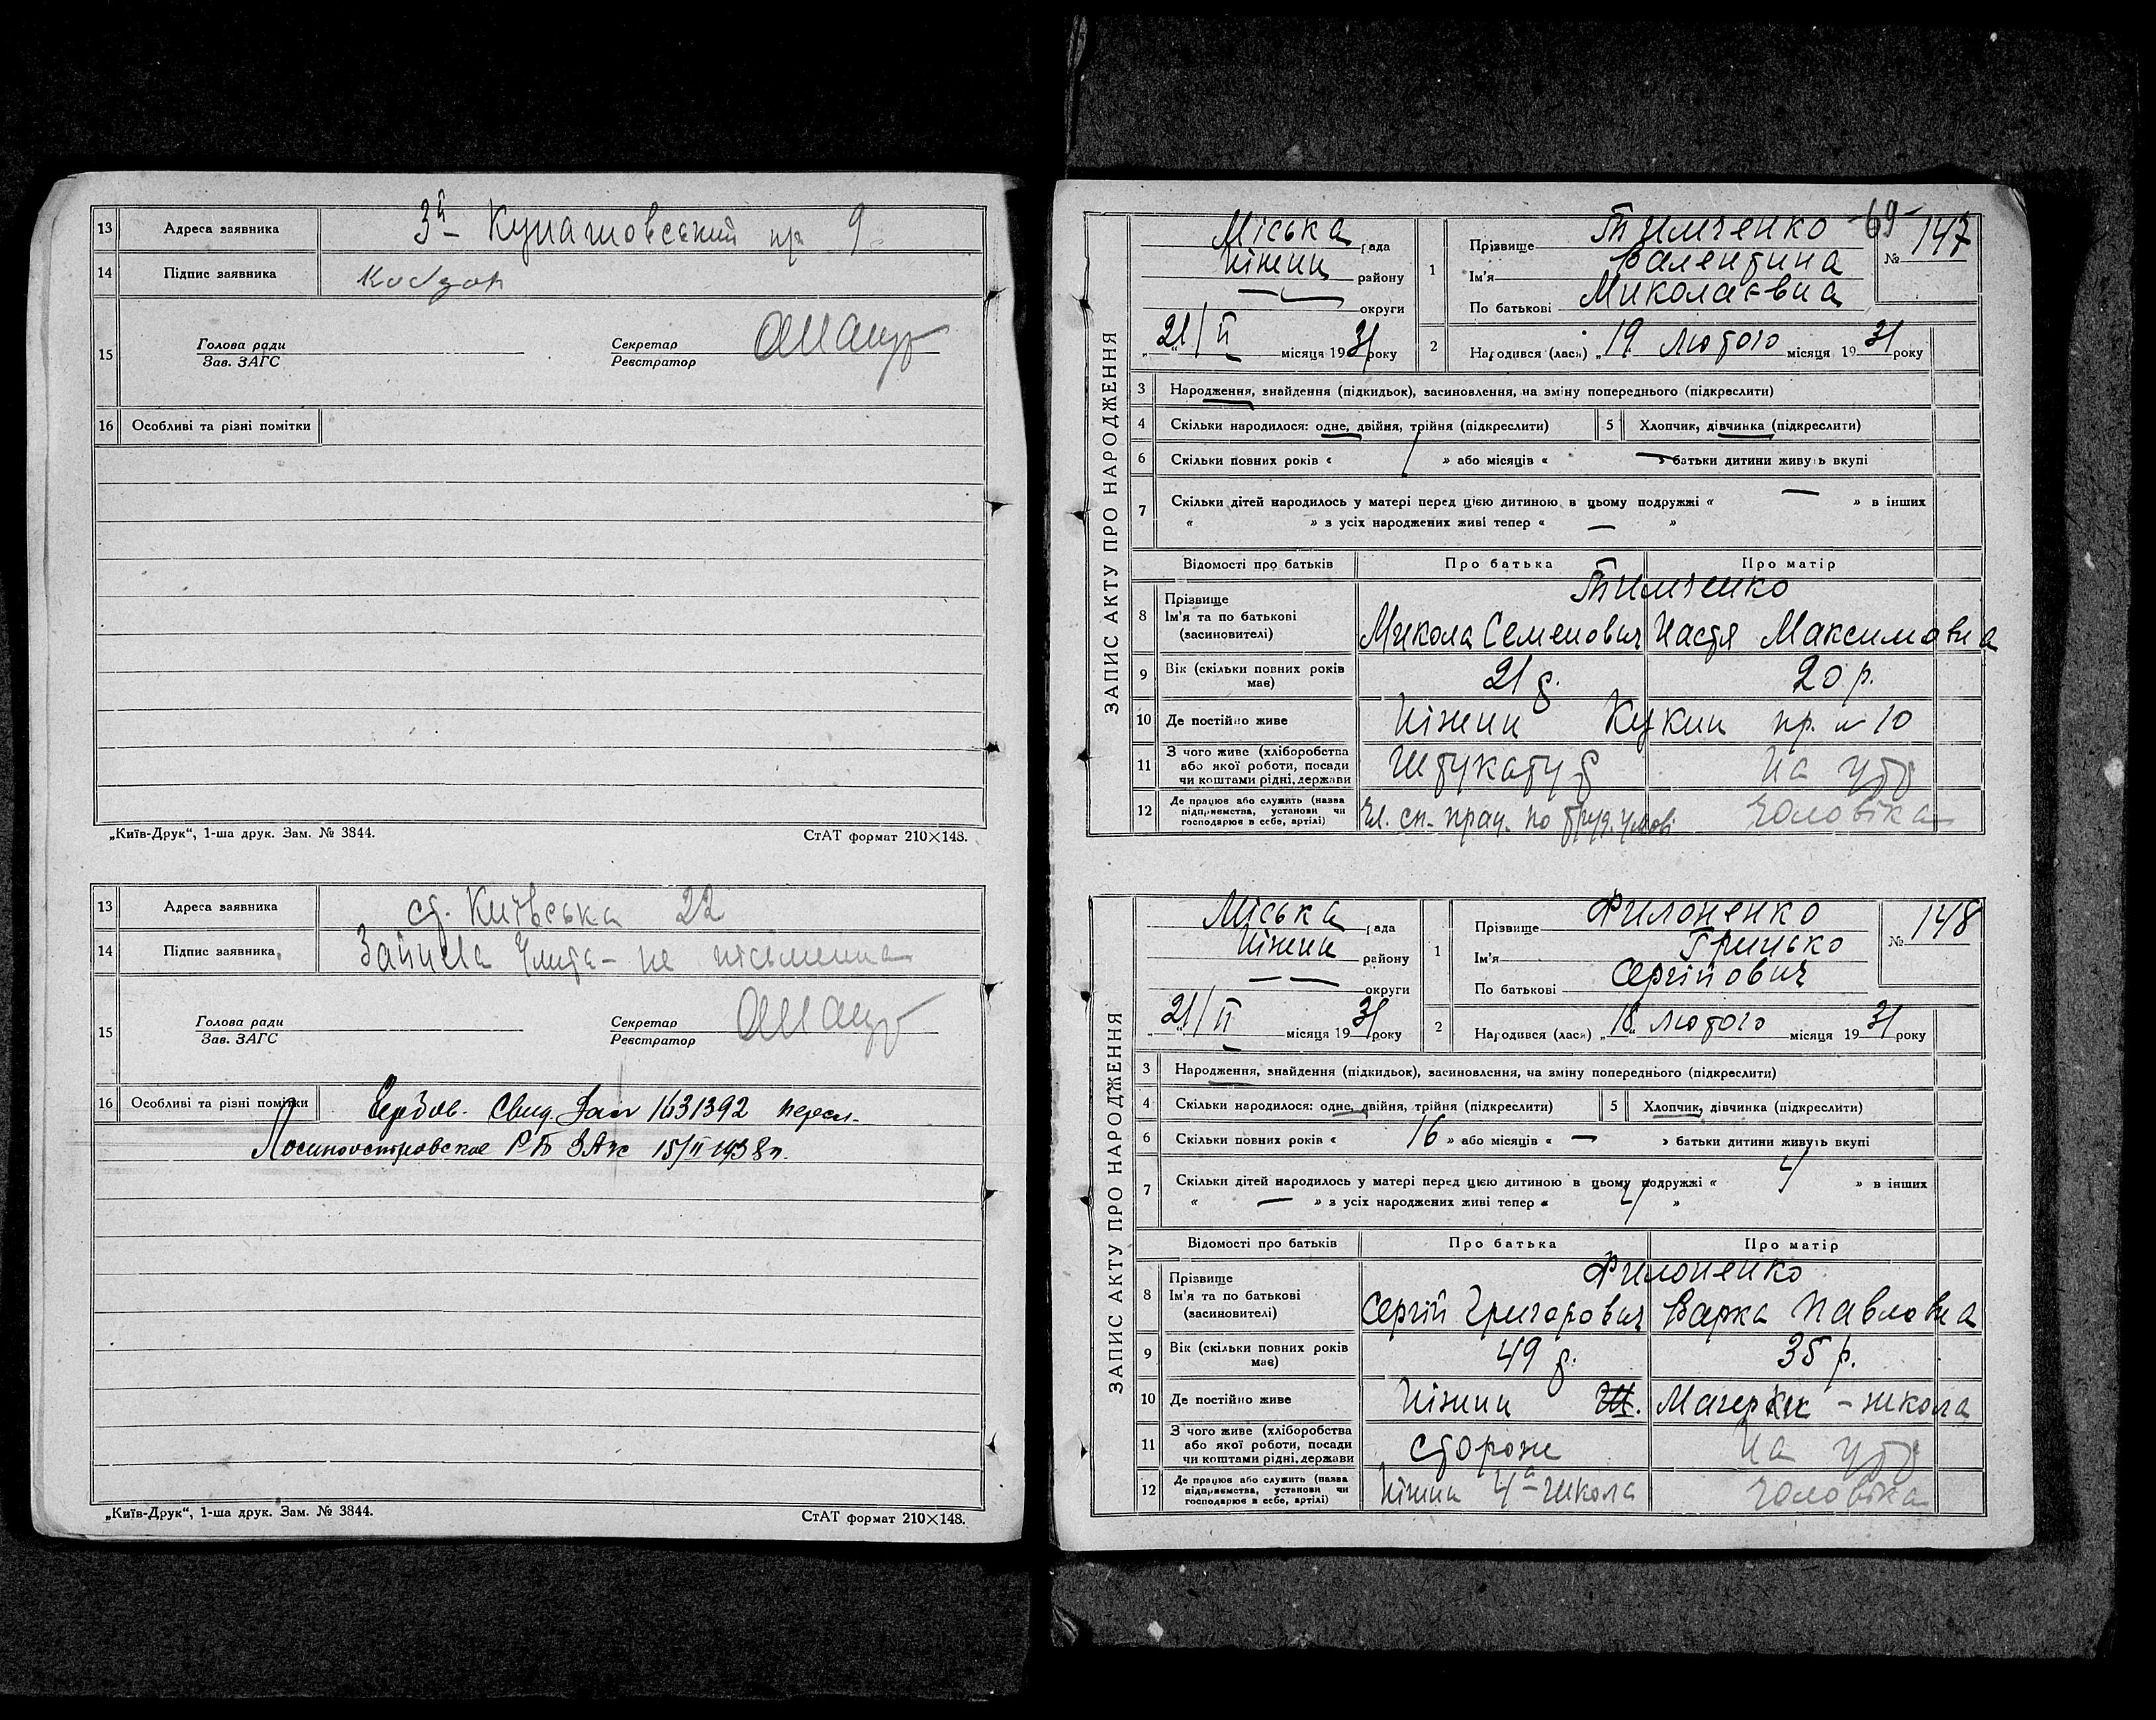 13 Адреса заявника 3й Кунашовський пр 9
14 Підпис заявника Кобзар
15 Голова ради Зав. ЗАГС Секретар Реєстратор
16 Особливі та різні помітки
„Київ-Друк“, 1-ша друк. Зам. № 3844. СтАТ формат 210×148.
13 Адреса заявника ст. Київська 22
14 Підпис заявника Зайцева не письменна
15 Голова ради Зав. ЗАГС Секретар Реєстратор
16 Особливі та різні помітки Свид. 1631392
Лосиноостровское 15/II 1938
„Київ-Друк“, 1-ша друк. Зам. № 3844. СтАТ формат 210×148.
ЗАПИС АКТУ ПРО НАРОДЖЕННЯ
-69-
Міська рада
Ніжин району
округи
„21/II місяця 1931 року
1 Прізвище Тимченко
Ім'я Валентина
По батькові Миколаєвна
№ 147
2 Народився (лась) „19 лютого місяця 1931 року
3 Народження, знайдення (підкидьок), засиновлення, на зміну попереднього (підкреслити)
4 Скільки народилося: одне, двійня, трійня (підкреслити) 5 Хлопчик, дівчинка (підкреслити)
6 Скільки повних років « 1 » або місяців « — » батьки дитини живуть вкупі
7 Скільки дітей народилось у матері перед цією дитиною в цьому подружжі « — » в інших
« » з усіх народжених живі тепер « — »
Відомості про батьків Про батька Про матір
8 Прізвище Ім'я та по батькові (засиновителі) Тимченко
Микола Семенович Настя Максимовна
9 Вік (скільки повних років має) 21 р. 20 р.
10 Де постійно живе Ніжин Кукин пр. № 10
11 З чого живе (хліборобства або якої роботи, посади чи коштами рідні, держави Штукатур На утр
12 Де працює або служить (назва підприємства, установи чи господарює в себе, артілі) Чл. сп. прац. по труд. умові Чоловіка
ЗАПИС АКТУ ПРО НАРОДЖЕННЯ
Міська рада
Ніжин району
округи
„21/II місяця 1931 року
1 Прізвище Филоненко
Ім'я Грицько
По батькові Сергійович
№ 148
2 Народився (лась) „18 лютого місяця 1931 року
3 Народження, знайдення (підкидьок), засиновлення, на зміну попереднього (підкреслити)
4 Скільки народилося: одне, двійня, трійня (підкреслити) 5 Хлопчик, дівчинка (підкреслити)
6 Скільки повних років « 16 » або місяців « — » батьки дитини живуть вкупі
7 Скільки дітей народилось у матері перед цією дитиною в цьому подружжі « 4 » в інших
« — » з усіх народжених живі тепер « 4 »
Відомості про батьків Про батька Про матір
8 Прізвище Ім'я та по батькові (засиновителі) Филоненко
Сергій Григорович Варка Павловна
9 Вік (скільки повних років має) 49 р. 35 р.
10 Де постійно живе Ніжин Магерки - школа
11 З чого живе (хліборобства або якої роботи, посади чи коштами рідні, держави сторож На утр
12 Де працює або служить (назва підприємства, установи чи господарює в себе, артілі) Ніжин 4а школа Чоловіка